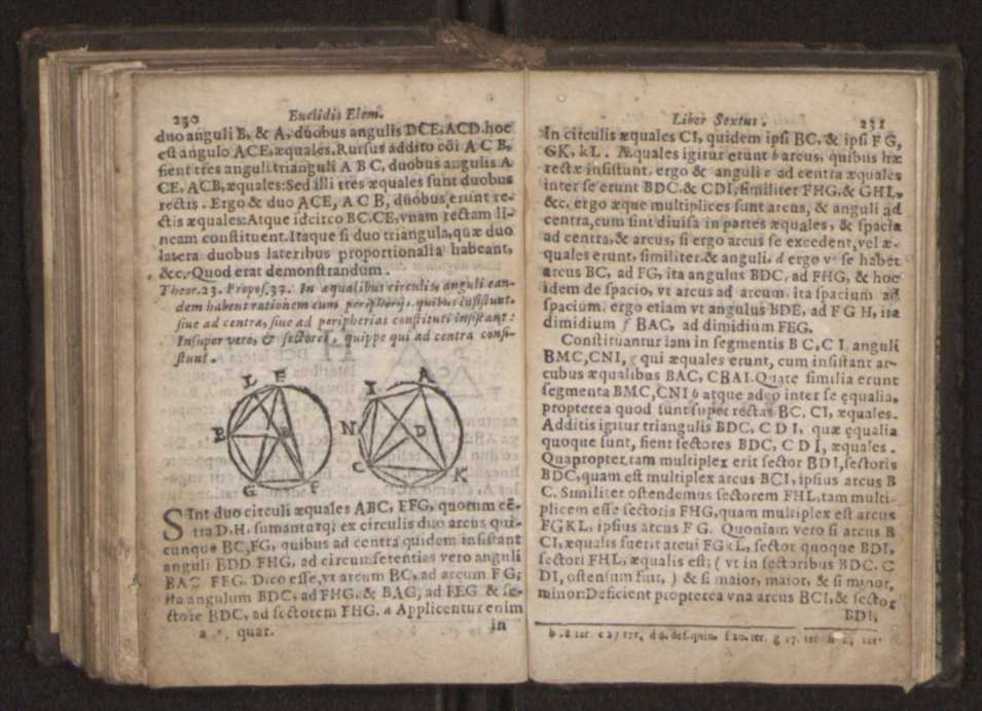 230 Euclidis Elem.
duo anguli B, & A, duobus angulis DCE, ACD. hoc
est angulo ACE, æquales. Rursus addito cõi A C B,
fient tres anguli trianguli A B C, duobus angulis A
CE, ACB, æquales: Sed illi tres æquales sunt duobus
rectis. Ergo & duo ACE, A C B, duobus erunt re-
ctis æquales: Atque idcirco BC. CE, vnam rectam li-
neam constituent. Itaque si duo triangula, quæ duo
latera duobus lateribus proportionalia habeant,
&c. Quod erat demonstrandum.
Theor. 23. Propos. 33. In æqualibus circulis, anguli ean-
dem habent rationem cum peripherijs, quibus insistunt.
siue ad centra, siue ad peripherias constituti insistant:
Insuper vero, & sectores, quippe qui ad centra consi-
stunt.
L E
B H
G F
I A
N D
C K
SInt duo circuli æquales ABC, EFG, quorum cẽ-
tra D. H. sumanturq; ex circulis duo arcus qui-
cunque BC, FG, quibus ad centra quidem insistant
anguli BDD FHG, ad circumferentias vero anguli
BAC FEG. Dico esse, vt arcum BC, ad arcum F G;
ita angulum BDC, ad FHG, & BAG, ad FEG & se-
ctore BDC, ad sectorem FHG. a Applicentur enim
a quar. in
Liber Sextus. 231
In circulis æquales CI, quidem ipsi BC, & ipsi F G,
GK, kL. Æquales igitur erunt b arcus, quibus hæ
rectæ insistunt, ergo & anguli c ad centra æquales
inter se erunt BDC. & CDI, similiter FHG. & GHL,
&c. ergo æque multiplices sunt arcus, & anguli ad
centra, cum sint diuisa in partes æquales, & spacia
ad centra, & arcus, si ergo arcus se excedent, vel æ-
quales erunt, similiter & anguli, d ergo vt se habet
arcus BC, ad FG, ita angulus BDC, ad FHG, & hoc
idem de spacio, vt arcus ad arcum, ita spacium ad
spacium. ergo etiam vt angulus BDE, ad F G H, ita
dimidium f BAC, ad dimidium FEG.
Constituantur iam in segmentis B C, C I anguli
BMC, CNI, g qui æquales erunt, cum insistant ar-
cubus æqualibus BAC, CBAI. Quare similia erunt
segmenta BMC, CNI h atque adeo inter se ęqualia,
propterea quod sunt super rectas BC, CI, æquales.
Additis igitur triangulis BDC, C D I, quæ ęqualia
quoque sunt, fient sectores BDC, C D I, æquales.
Quapropter tam multiplex erit sector BDI, sectoris
BDC, quam est multiplex arcus BCI, ipsius arcus B
C. Similiter ostendemus sectorem FHL, tam multi-
plicem esse sectoris FHG, quam multiplex est arcus
FGKL, ipsius arcus F G. Quoniam vero si arcus B
CI, æqualis fuerit arcui FGkL, sector quoque BDI,
sectori FHL, æqualis est; ( vt in sectoribus BDC. C
DI, ostensum fuit, ) & si maior, maior, & si minor,
minor: Deficient propterea vna arcus BCI, & sector
BDI,
b. 28 ter. c 27 ter, d 6. def. quin. f 20. ter. g 27. ter